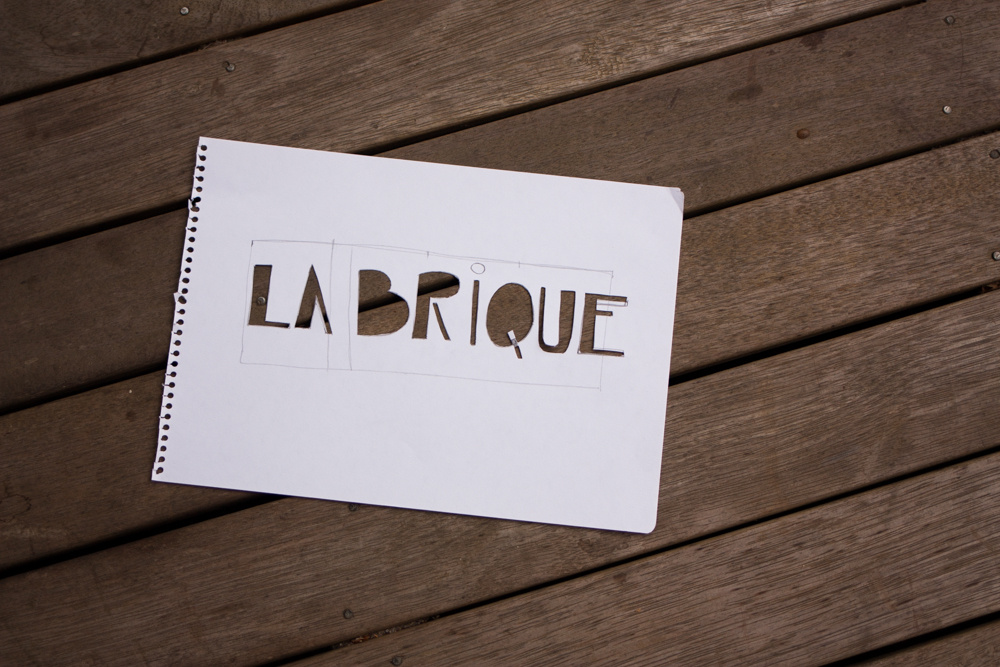 LA BRIQUE